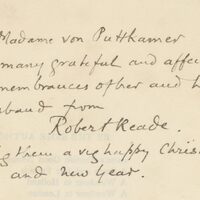 Madame von Putthamer
many grateful and affec
membrances of her and h
sband from
Robert Reade.
g them a very happy Chris
and new year.